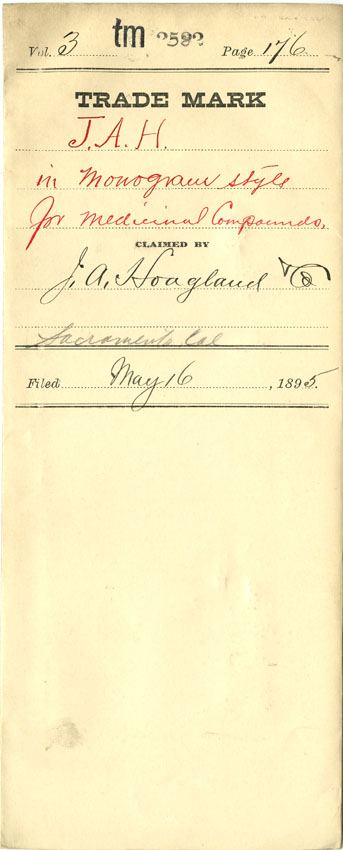 Vol. 3 tm 2592 Page 176
TRADE MARK
J.A.H.
in Monogram style
for Medicinal Compounds.
CLAIMED BY
J. A. Hoagland
Sacramento Cal
Filed May 16, 1895.